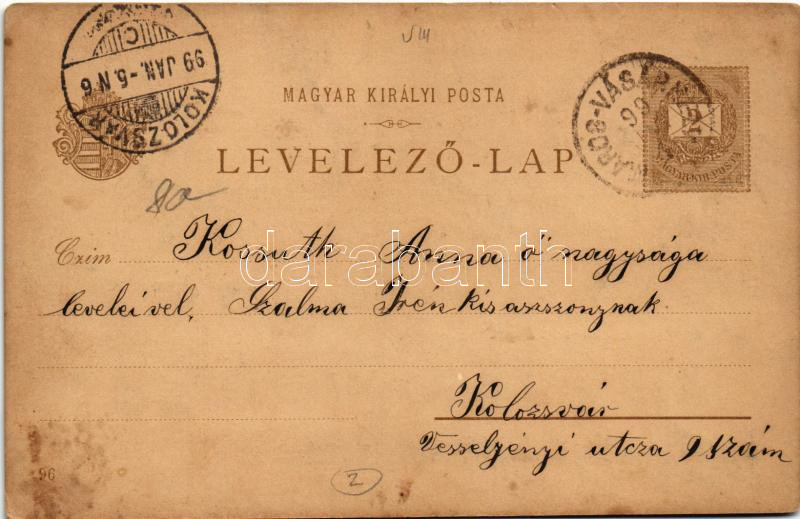 99 JAN.-5.N6
KOLOZSVÁR
MAGYAR KIRÁLYI POSTA
LEVELEZŐ-LAP
MAROS-VÁSÁR
99
MAGYAR KIR. POSTA
80
Czim Kossuth Anna ő nagysága
leveleivel, Szalma Irén kisaszszonynak
Kolozsvár
Vesselényi utcza 9 szám
96
2
darabanth